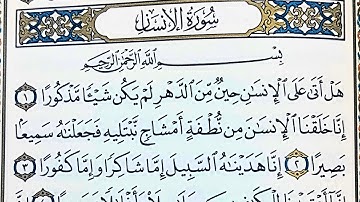 سُورَةُ الإِنسَانِ
بِسْمِ ٱللَّهِ ٱلرَّحْمَٰنِ ٱلرَّحِيمِ
هَلْ أَتَىٰ عَلَى ٱلْإِنسَٰنِ حِينٌ مِّنَ ٱلدَّهْرِ لَمْ يَكُن شَيْـًٔا مَّذْكُورًا ١
إِنَّا خَلَقْنَا ٱلْإِنسَٰنَ مِن نُّطْفَةٍ أَمْشَاجٍ نَّبْتَلِيهِ فَجَعَلْنَٰهُ سَمِيعًۢا
بَصِيرًا ٢ إِنَّا هَدَيْنَٰهُ ٱلسَّبِيلَ إِمَّا شَاكِرًا وَإِمَّا كَفُورًا ٣